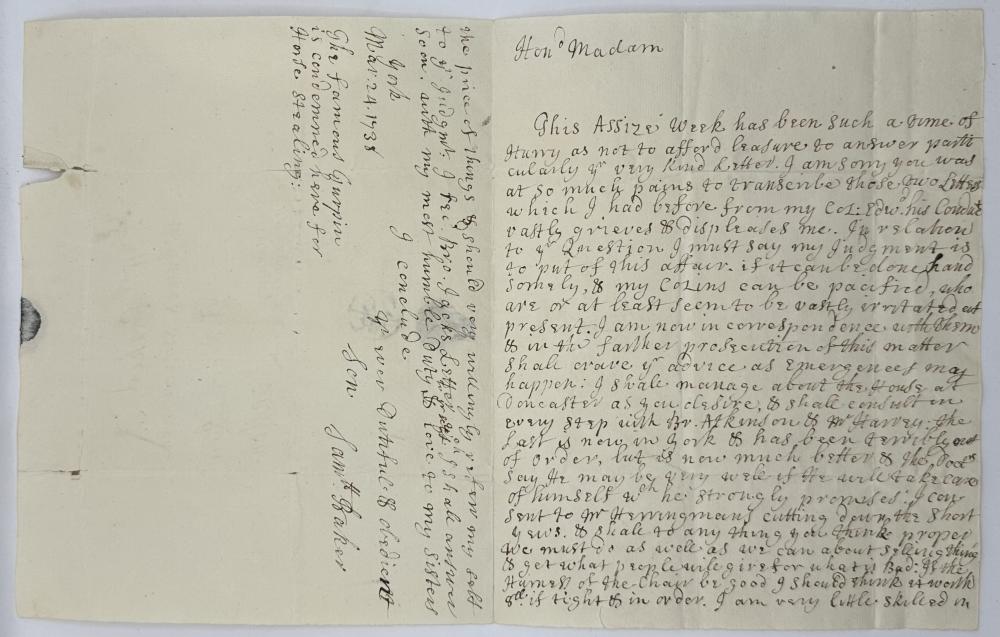 Honᵈ Madam
This Assize Week has been such a time of
Hurry as not to afford leasure to answer parti
cularly yʳ very kind Letter. I am sorry you was
at so much pains to transcribe those two Letters
which I had before from my Cos: Edwᵈ his Conduct
vastly grieves & displeases me. In relation
to yʳ Question I must say my Judgment is
to put of this affair. if it can be done hand
somely, & my Cosins can be pacified, who
are or at least seem to be vastly irritated at
present. I am now in correspondence with them
& in the farther prosecution of this matter
shall crave yʳ advice as Emergences may
happen: I shall manage about the House at
Doncaster as you desire, & shall consult in
every step with Br. Atkinson & Mʳ Harvey: the
last is now in York & has been terribly out
of order, but is now much better & the Docᵗˢ
say He may be very well if He will take care
of himself wᶜʰ he strongly promises: I con
sent to Mʳ Herringmans cutting down the short
yews. & shall to any thing you think proper
We must do as well as we can about selling things
& get what people will give for what is Bad: If the
Harness of the Chair be good I should think it worth
if tight & in order. I am very little skilled in
the price of things & should very willingly referr my self
to yʳ Judgmᵗ. I rec. Bro. Jacks Letter wᶜʰ I shall answer
soon. with my most humble Duty & love to my Sisters
I conclude
yʳ ever Dutifull & obedient
Son Samˡˡ Baker
York
Mar. 24. 1738
The famous Turpin
is condemned here for
Horse stealing: